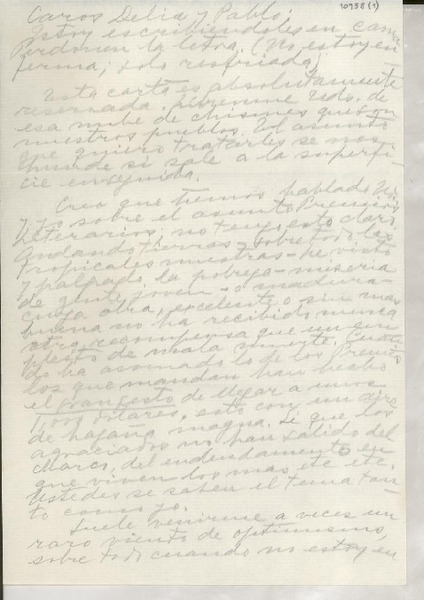 10958(1)
Caros Delia y Pablo:
Estoy escribiendoles en cama
Perdonen la letra. (No estoy en
ferma; solo resfriada)
Esta carta es absolutamente
reservada. Líbrenme Uds. de
esa nube de chismes que son
nuestros pueblos. El asunto
que quiero tratarles se nos
hunde si sale a la superfi-
cie enseguida.
Creo que hemos hablado Uds.
y yo sobre el asunto Premios
Literarios; no tengo esto claro.
Andando tierras y sobre todo las
tropicales nuestras - he visto
y palpado la pobreza - miseria
de gente joven - o madura -
cuya obra, excelente o sin mas
buena no ha recibido nunca
otra recompensa que un em
pleato de mala muerte. Cuan
do ha asomado lo de los Premios
los que mandan han hecho
el gran gesto de llegar a unos
1,000 dólares, esto con un aire
de hazaña magna. Sé que los
agraciados no han salido del
charco, del endeudamiento en
que viven los mas, etc etc.
Ustedes se saben el tema tan-
to como yo.
Suele venirme a veces un
raro viento de optimismo,
sobre todo cuando no estoy en